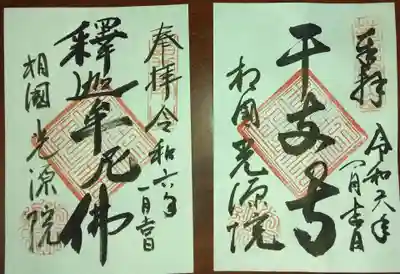 奉拝 令和六年
一月吉日
釋迦牟尼佛
相國 光源院
奉拝
令和六年
一月吉日
干支寺
相國 光源院